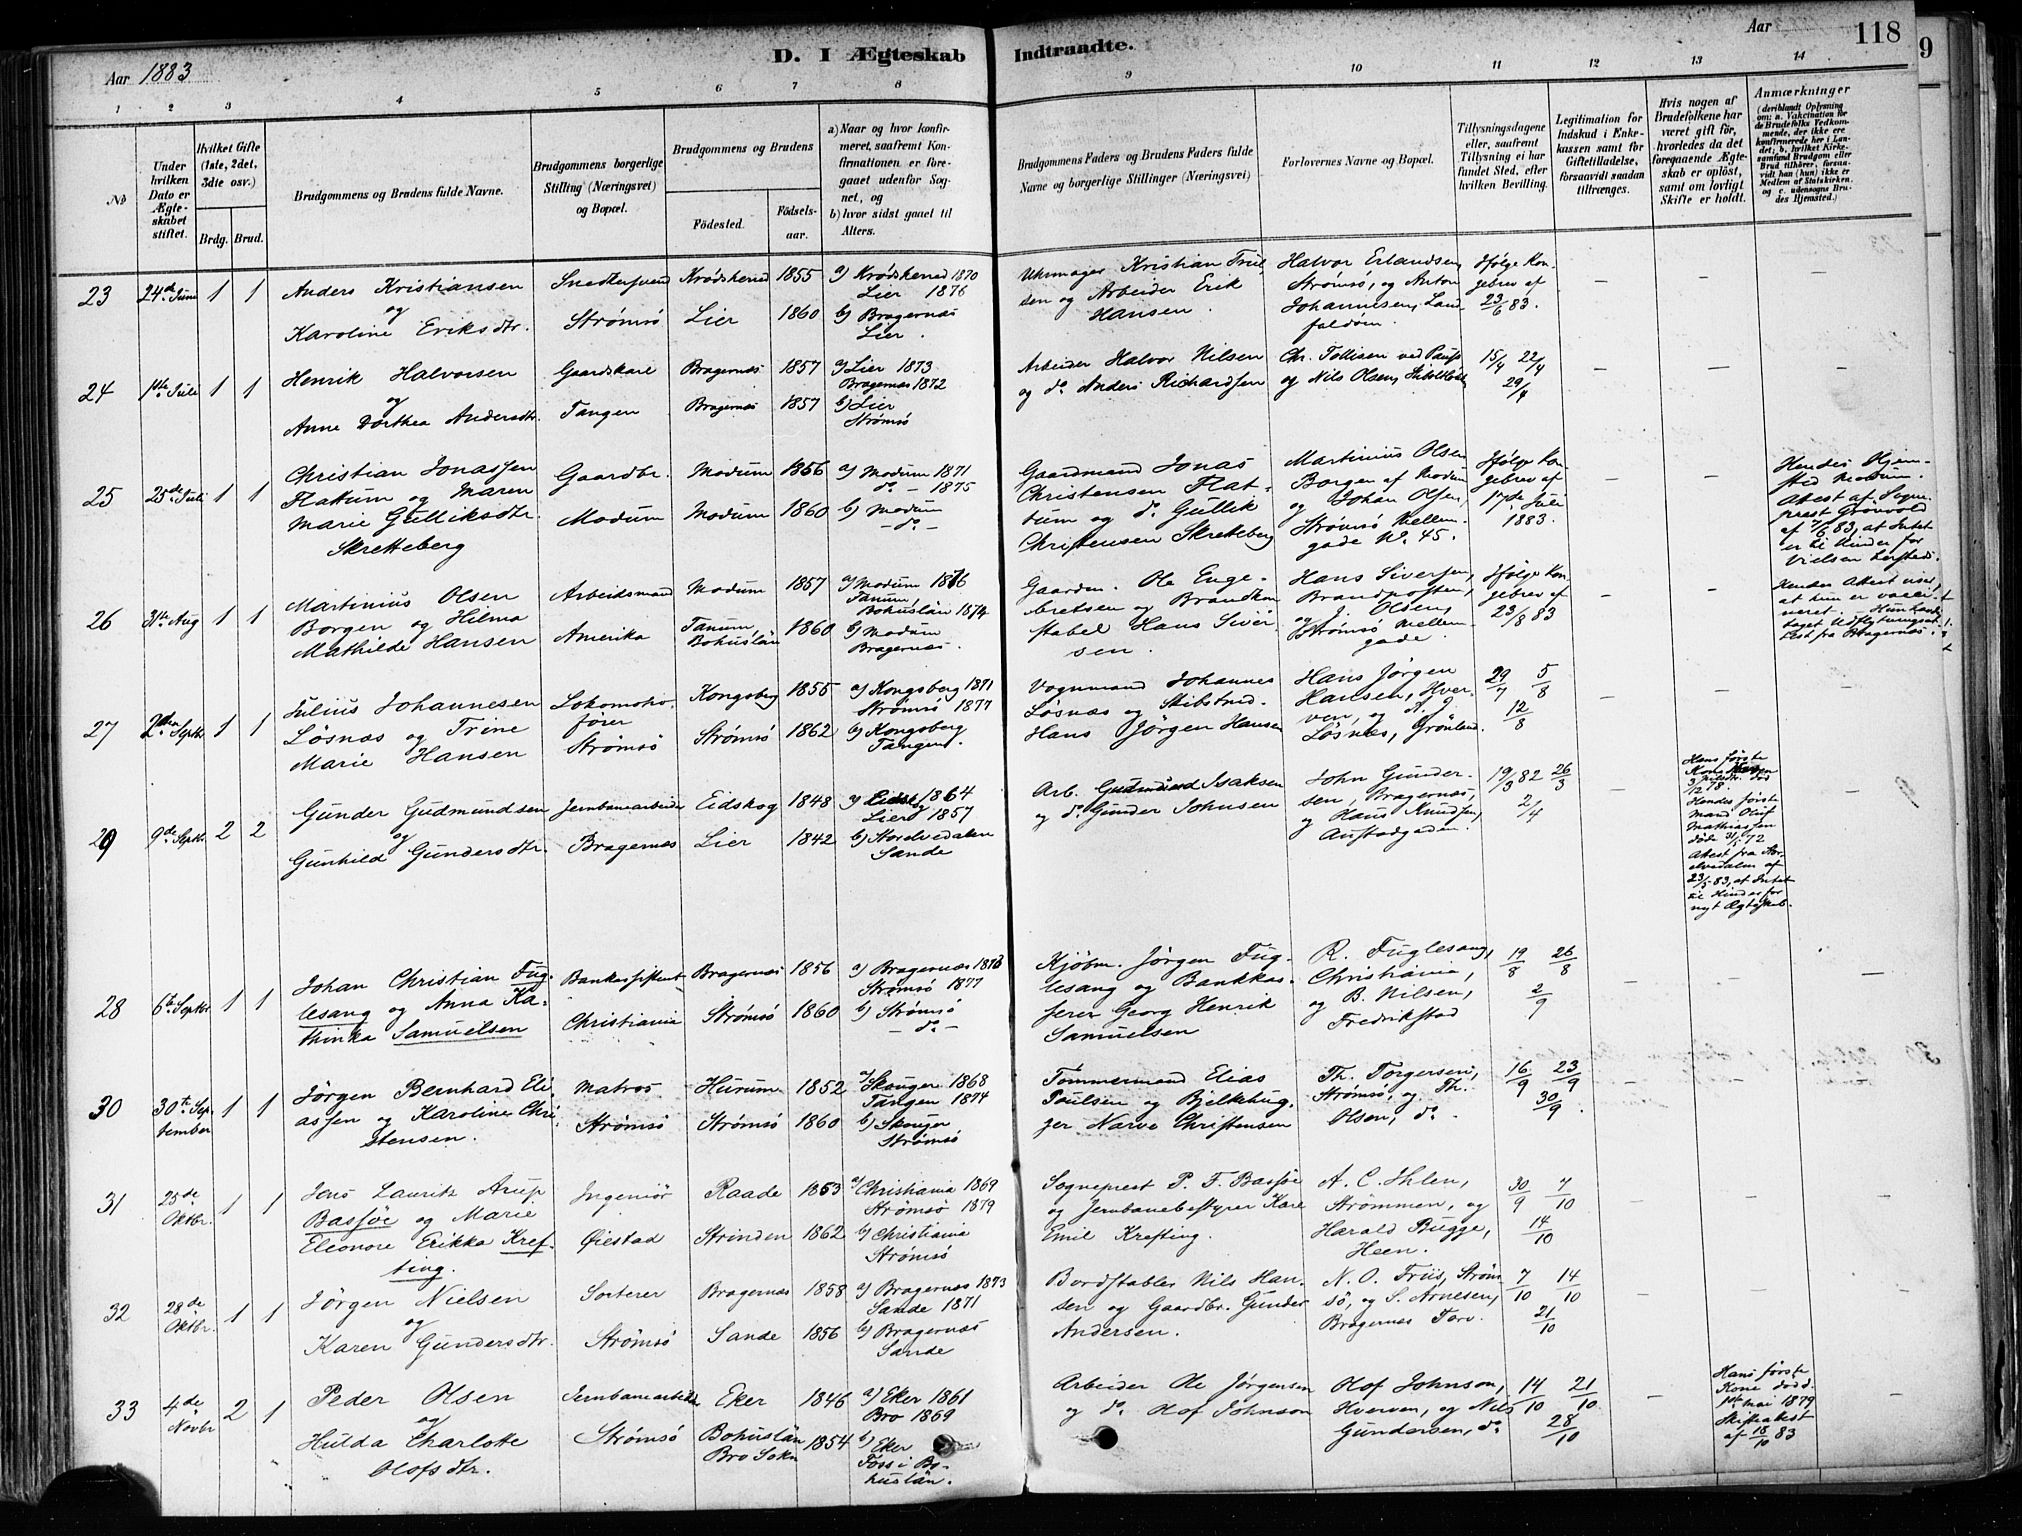 D. I Ægteskab Indtraadte.
Aar 1883
Aar
118
9
1 2 3 4 5 6 7 8 9 10 11 12 13 14
No
Under hvilken Dato er Ægteskabet stiftet.
Hvilket Gifte (1ste, 2det, 3die osv.)
Brdg. Brud.
Brudgommens og Brudens fulde Navne.
Brudgommens borgerlige Stilling (Næringsvei) og Bopæl.
Brudgommens og Brudens
Födested.
Födselsaar.
a) Naar og hvor konfirmeret, saafremt Konfirmationen er foregaaet udenfor Sognet, og
b) hvor sidst gaaet til Alters.
Brudgommens Faders og Brudens Faders fulde Navne og borgerlige Stillinger (Næringsvei)
Forlovernes Navne og Bopæl.
Tillysningsdagene eller, saafremt Tillysning ei har fundet Sted, efter hvilken Bevilling.
Legitimation for Indskud i Enkekassen samt for Giftetilladelse, forsaavidt saadan tiltrænges.
Hvis nogen af Brudefolkene har været gift för, hvorledes da det foregaaende Ægteskab er oplöst, samt om lovligt Skifte er holdt.
Anmærkninger
(deriblandt Oplysning om: a. Vakcination for de Brudefolks Vedkommende, der ikke ere konfirmerede her i Landet; b. hvilket Kirkesamfund Brudgom eller Brud tilhörer, forsaavidt han (hun) ikke er Medlem af Statskirken, og c. udensogns Brudes Hjemsted.)
23 24de Juni 1 1
Anders Kristiansen
og
Karoline Eriksdtr.
Snedkersvend
Strømsö
Krødsherred 1855
Lier 1860
a) Krødsherred 1870
Lier 1876
b) Bragernæs
Lier.
Uhrmager Kristian Trulsen og Arbeider Erik
Hansen.
Halvor Erlandsen,
Strømsö, og Anton
Johannesen, Landfaldøen.
Ifølge Kongebrev af
23/6 83.
24 1ste Juli 1 1
Henrik Halvorsen
og
Anne Dorthea Andersdtr.
Gaardskarl
Tangen
Bragernæs 1857
Bragernæs 1857
a) Lier 1873
Bragernæs 1872
b) Lier
Strømsö
Arbeider Halvor Nilsen
og do Anders Richardsen
Chr. Tollisen ved
og Nils Olsen,
15/4 22/4
29/4
25 25de Juli 1 1
Christian Jonassen
Flattum og Maren
Marie Gulliksdtr.
Skretteberg
Gaardbr.
Modum
Modum 1856
Modum 1860
a) Modum 1871
do - 1875
b) Modum
- do -
Gaardmand Jonas
Christensen Flattum og do Gullik
Christensen Skretteberg
Martinius Olsen
Borgen af Modum
og Johan Olsen,
Strømsö Mellemgade No. 45.
Ifølge Kongebrev af
17de Juli
1883.
Hendes Hjemsted Modum.
Attest af Sognepræst Grønvold
af 7/6 83, at Intet
er til Hinder for
Vielsen
26 31te Aug 1 1
Martinius Olsen
Borgen og Hilma
Mathilde Hansen
Arbeidsmand
Amerika
Modum 1857
Tanum, Bohuslän 1860
a) Modum 1876
Tanum,
Bohuslän 1874
b) Modum
Bragernæs.
Gaardm. Ole Engebretsen og Brandkonstabel Hans Siversen.
Hans Siversen,
Brandposten,
og J. Olsen,
Strømsö Mellemgade
Ifølge Kongebrev af
23/8 83
Hendes Attest viser,
at hun er vaccineret. - Hun har
taget Udflytningsattest fra Bragernæs.
27 2den Septbr. 1 1
Julius Johannesen
Løsnæs og Trine
Marie Hansen
Lokomotivfører
Strømsö
Kongsberg 1855
Strømsö 1862
a) Kongsberg 1871
Strømsö 1877
b) Kongsberg
Tangen.
Vognmand Johannes
Løsnæs og Skibstmd.
Hans Jörgen Hansen
Hans Jörgen
Hansen, Hverven, og A. J.
Løsnæs, Grønland.
29/7 5/8
12/8
29 9de Septbr. 2 2
Gunder Gudmundsen
og
Gunhild Gundersdtr.
Jernbanearbeider
Bragernæs
Eidskog 1848
Lier 1842
a) Eidskog 1864
Lier 1857
b) Storelvedalen
Sande
Arb. Gudmund Isaksen
og do Gunder Johnsen
John Gundersen, Bragernæs,
og Hans Knudsen,
Austadgaden.
19/3 82 26/3
2/4
Hans første
Kone
død
3/12 78.
Hendes første
Mand Oluf
Mathiassen
døde 31/1 72
Attest fra Storelvedalen af
23/5 83, at Intet
til Hinder for
nyt Ægteskab.
28 6te Septbr. 1 1
Johan Christian Fuglesang og Anna Kathinka Samuelsen
Bankassistent
Christiania
Bragernæs 1856
Strømsö 1860
a) Bragernæs
Strømsö 1877
b) Strømsö
- do -
Kjøbm. Jørgen Fuglesang og Bankkasserer Georg Henrik
Samuelsen
R. Fuglesang,
Christiania,
og B. Nilsen,
Fredrikstad
19/8 26/8
2/9
30 30te September 1 1
Jørgen Bernhard Eliassen og Karoline Christensen.
Matros
Strømsö
Hurum 1852
Strømsö 1860
a) Skouger 1868
Tangen 1874
b) Skouger
Strømsö
Tømmermand Elias
Poulsen og Bjelkehugger Narve Christensen
Th. Torgersen,
Strømsö, og Th.
Olsen, do.
16/9 23/9
30/9.
31 25de Oktbr. 1 1
Jens Lauritz Arup
Bassøe og Marie
Eleonore Erikka Krefting.
Ingeniör
Øiestad
Raade 1853
Strinden 1862
a) Christiania 1869
Strømsö 1879
b) Christiania
Strømsö
Sogneprest P. F. Bassøe
og Jernbanebestyrer Kare
Emil Krefting.
A. C. Ihlen,
Strømmen, og
Harald Bugge,
Heen.
30/9 7/10
14/10
32 28de Oktbr. 1 1
Jørgen Nielsen
og
Karen Gundersdtr.
Sorterer
Strømsö
Bragernæs 1858
Sande 1856
a) Bragernæs 1873
Sande 1871
b) Bragernæs
Sande
Bordstabler Nils Hansen og Gaardbr. Gunder
Andersen.
N. O. Friis, Strømsö, og S. Arnesen,
Bragernes Torv.
7/10 14/10
21/10
33 4de Novbr 2 1
Peder Olsen
og
Hulda Charlotte
Olofsdtr.
Jernbanearbeider
Strømsö
Eker 1846
Bohuslän
Bro Sokn 1854
a) Eker 1861
Bro 1869
b) Eker
Foss i Bohuslän.
Arbeider Ole Jørgensen
og do Olof Johnson
Olof Johnson,
Hverven, og Nils
Gundersen, do
14/10 21/10
28/10
Hans første
Kone død d.
1ste Mai 1879
Skifteattest
af 18/10 83